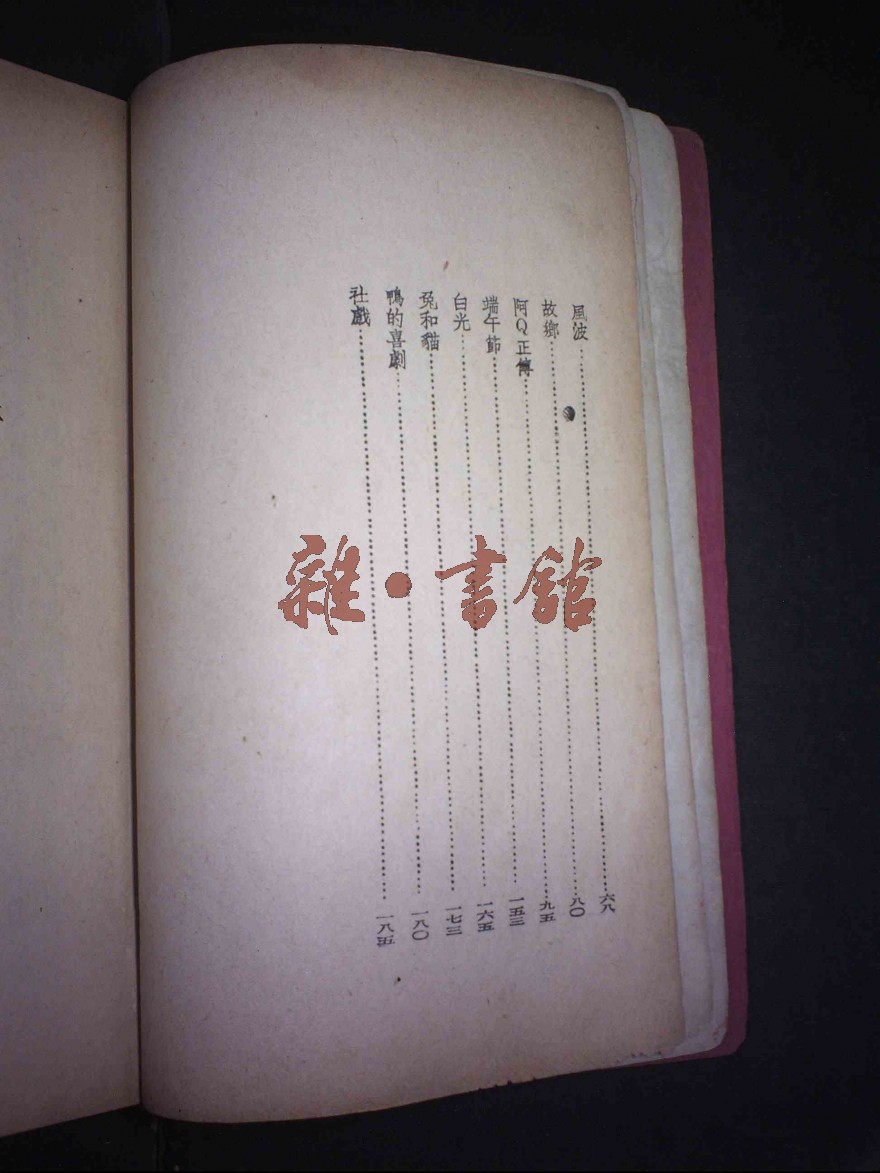 風波……六八
故鄉……八〇
阿Q正傳……九五
端午節……一五三
白光……一六五
兔和貓……一七三
鴨的喜劇……一八〇
社戲……一八五
雜·書館